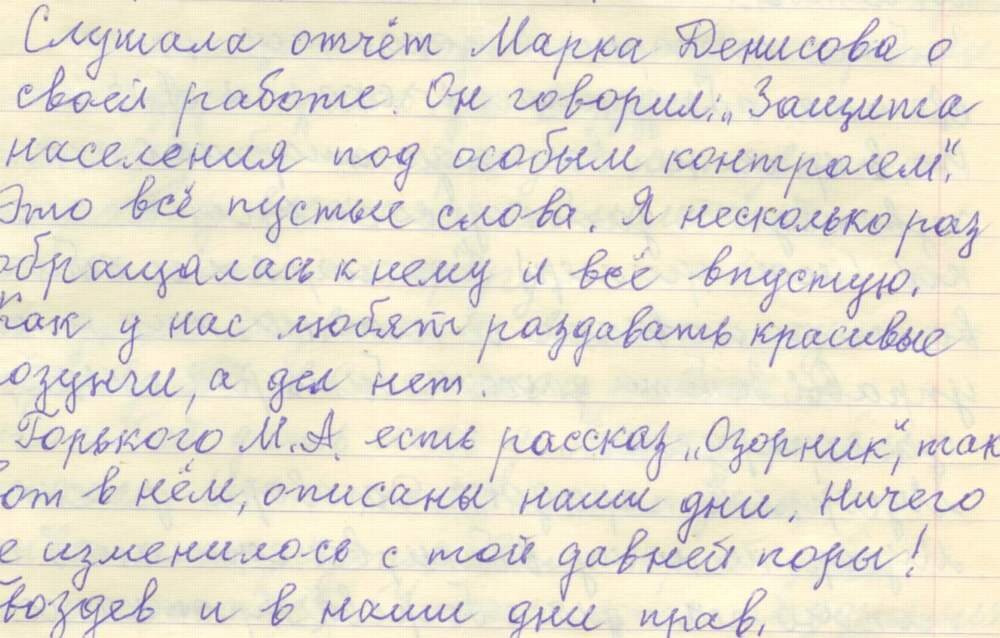 Слушала отчёт Марка Денисова о
своей работе. Он говорил: „Защита
населения под особым контролем".
Это всё пустые слова. Я несколько раз
обращалась к нему и всё впустую.
Как у нас любят раздавать красивые
озунги, а дел нет.
Горького М.А. есть рассказ „Озорник", так
вот в нём, описаны наши дни. Ничего
е изменилось с той давней поры!
воздев и в наши дни прав.